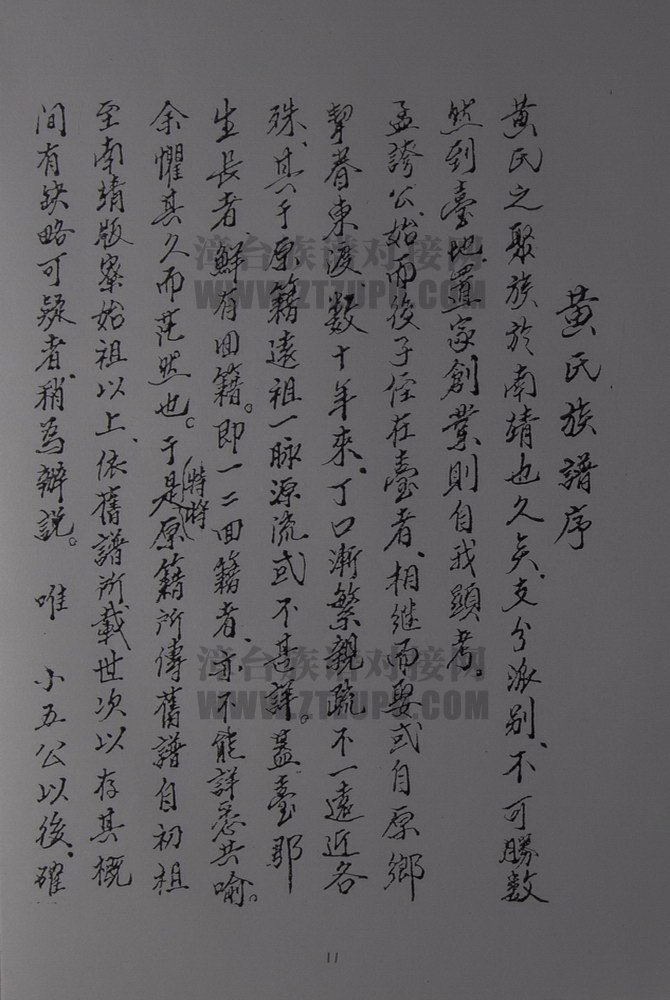 黃氏族譜序
黃氏之聚族於南靖也久矣、支分派別、不可勝數
然到臺地、置家創業則自我顯考。
孟誇公、始而後子侄在臺者、相継而娶或自原鄉
挈眷東渡、数十年來、丁口漸繁親疏不一遠近各
殊、其于原籍遠祖一脉源流或不甚詳。蓋臺郡
生長者、鮮有回籍。即一二回籍者、亦不能詳悉共喻。
余懼其久而茫然也。于是(特將)原籍所傳舊譜自初祖
至南靖版寮始祖以上、依舊譜所載世次以存其概
間有缺略可疑者、稍為辦說。 唯 小五公以後、確
漳台族谱对接网
WWW.ZTZUPU.COM
漳台族谱对接网
WWW.ZTZUPU.COM
11